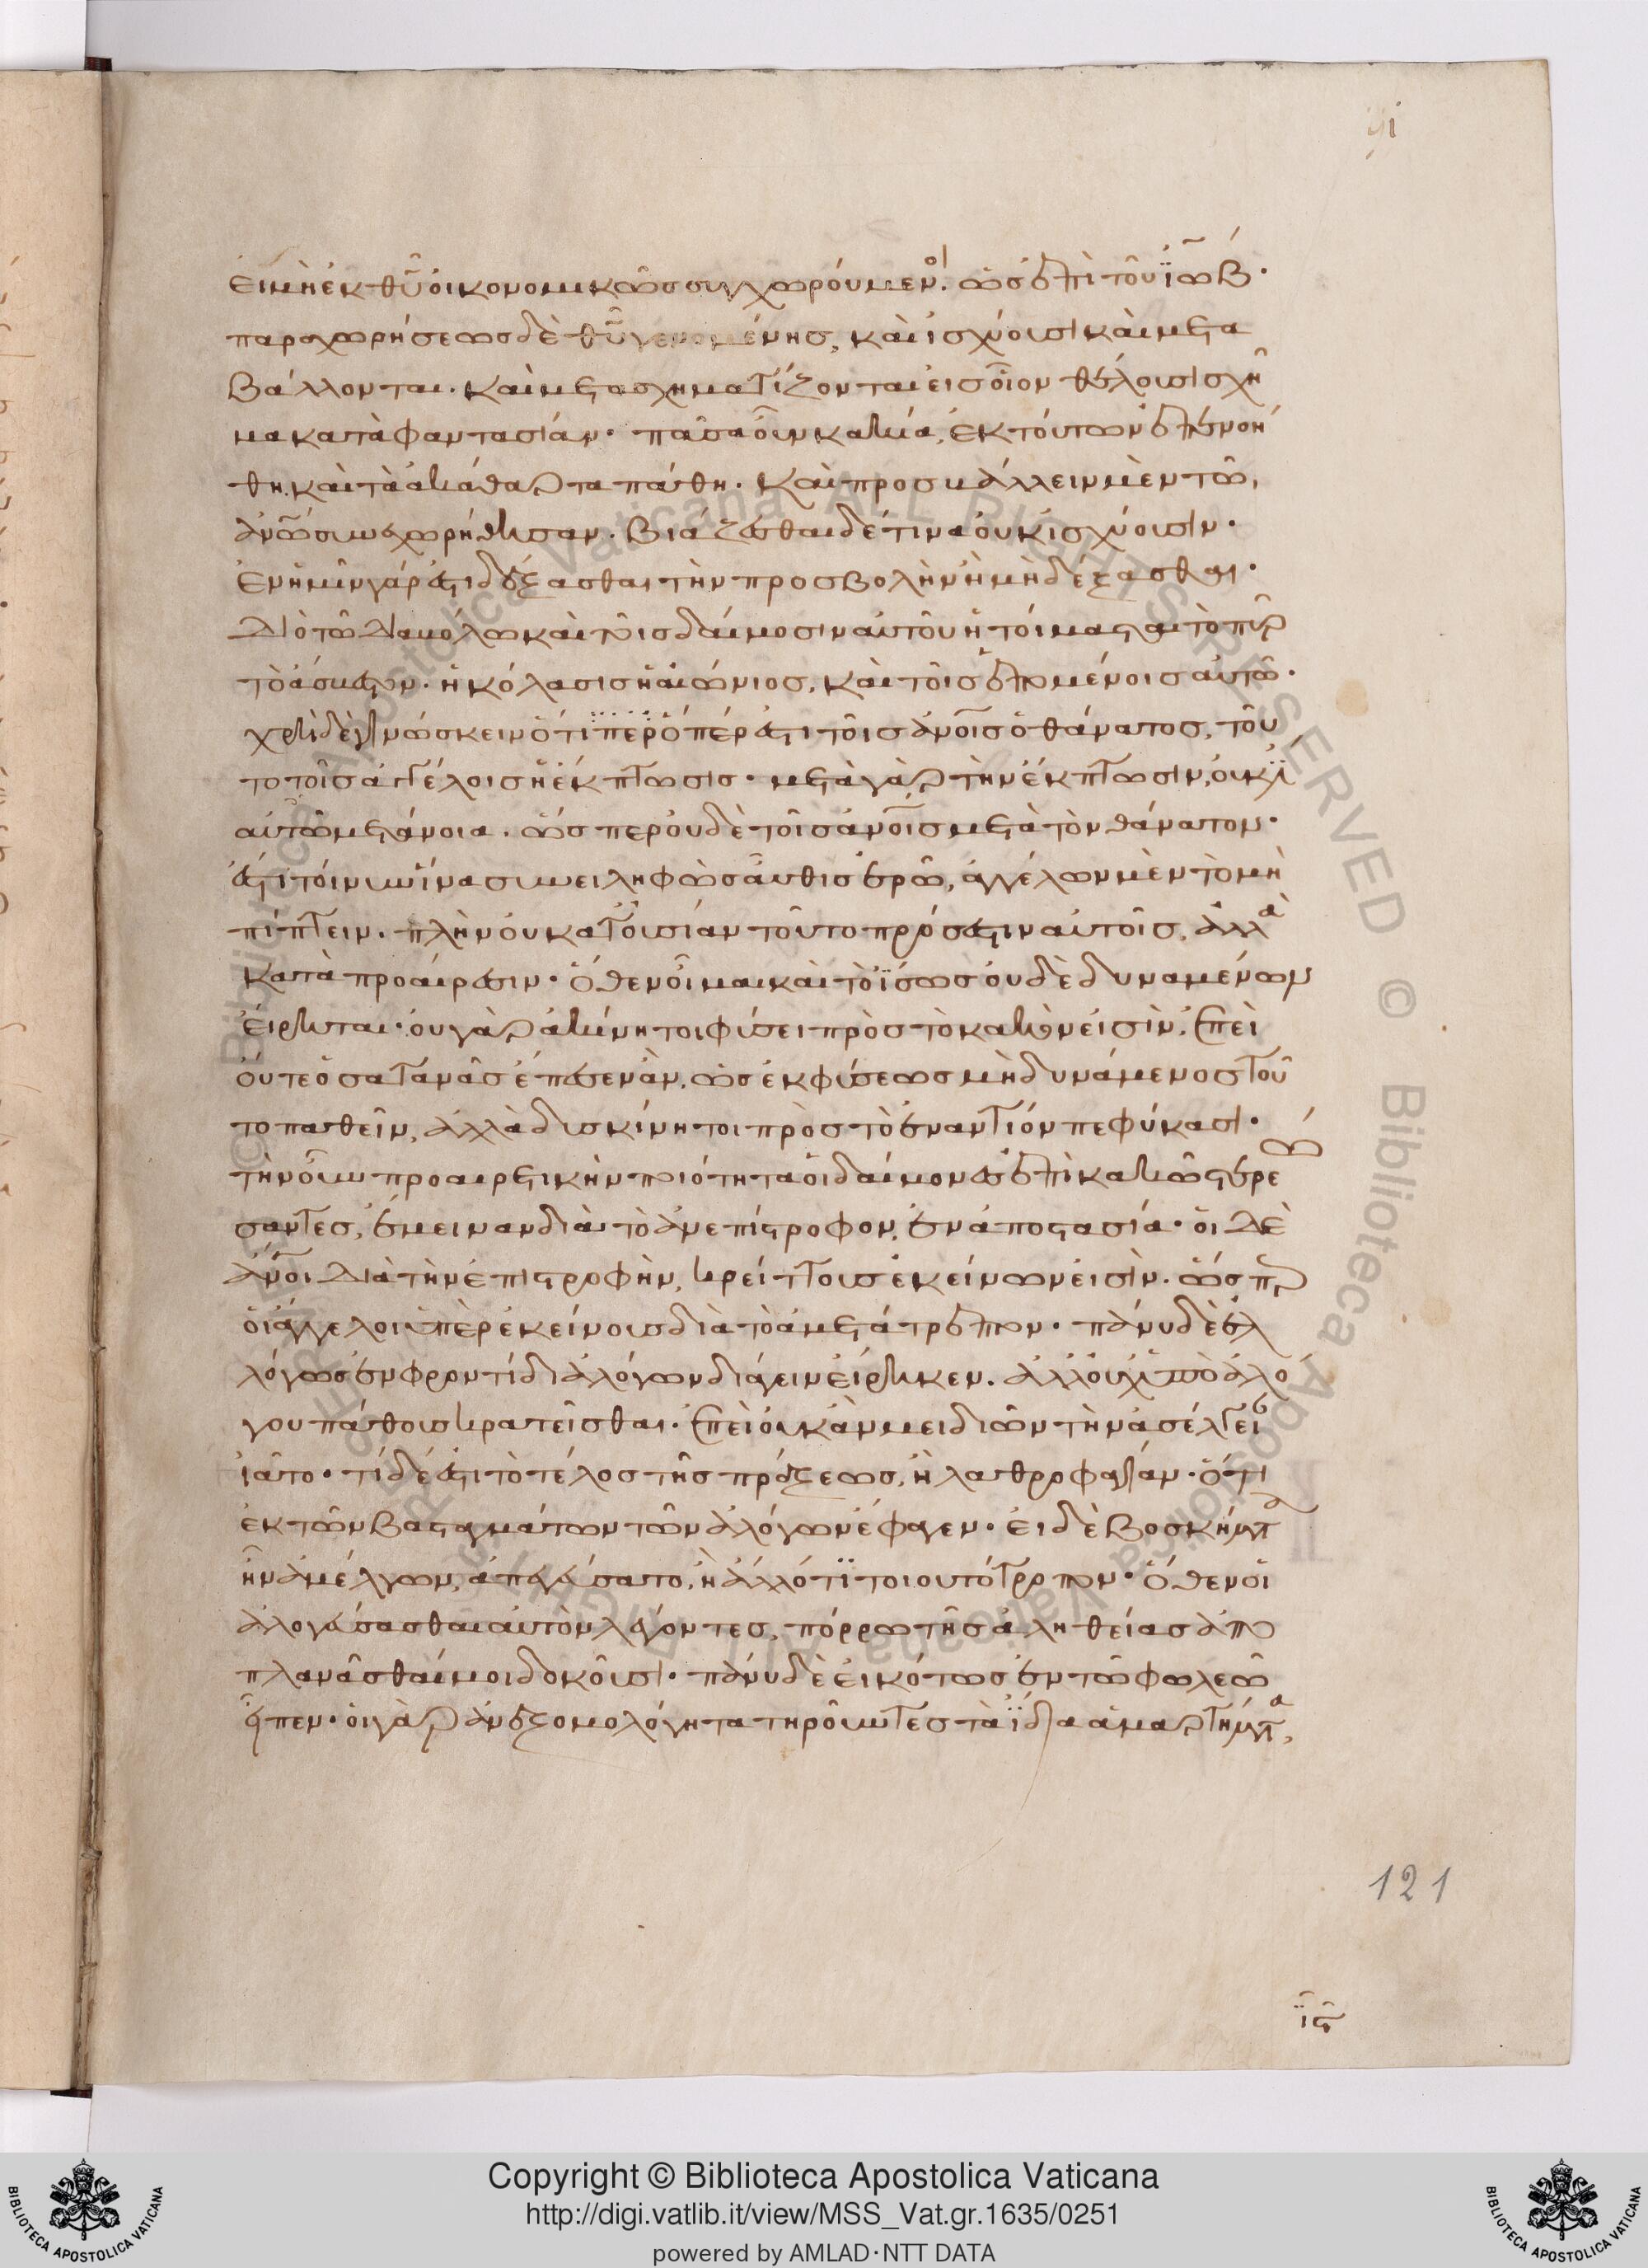 γι
εἰ μὴ ἐκ θῦ οἰκονομικῶς συγχωρούμενοι. ὡς ἐπὶ τοῦ ἰώβ·
παραχωρήσεως δὲ θῦ γενομένης, καὶ ἰσχύουσι καὶ μετα
βάλλονται. καὶ μετασχηματίζονται εἰς οἷον θέλουσι σχῆ
μα κατὰ φαντασίαν. πᾶσα οὖν κακία, ἐκ τούτων ἐπενοή
θη. καὶ τὰ ἀκάθαρτα πάθη. καὶ προσβάλλειν μὲν τῶ
ἀνῶ συνεχωρήθησαν. βιάζεσθαι δέ τινα οὐκ ἰσχύουσιν.
ἐν ἡμῖν γάρ ἐστι δέξασθαι τὴν προσβολὴν ἢ μὴ δέξασθαι.
Διὸ τῶ διαβόλω καὶ τοῖς δαίμοσιν αὐτοῦ ἡτοίμασται τὸ πῦρ
τὸ ἄσβεστον. ἡ κόλασις ἡ αἰώνιος, καὶ τοῖς ἑπομένοις αὐτῶ.
χρὴ δὲ γινώσκειν ὅτιπερ ὅπερ ἐστι τοῖς ἀνοις ὁ θάνατος, τοῦ
το τοῖς ἀγγέλοις ἡ ἔκπτωσις. μετὰ γὰρ τὴν ἔκπτωσιν, οὐκ ἔστι
αὐτῶν μετάνοια. ὥσπερ οὐδὲ τοῖς ἀνοις μετὰ τὸν θάνατον.
ἔστι τοίνυν ἵνα συνειληφὼς αὖθις ἐρῶ, ἀγγέλων μὲν τὸ μὴ
πίπτειν. πλὴν οὐ κατ' οὐσίαν τοῦτο πρόσεστιν αὐτοῖς, ἀλλὰ
κατὰ προαίρεσιν. ὅθεν οἶμαι καὶ τὸ ἴσως οὐδὲ δυναμένων
εἴρηται. οὐ γὰρ ἀκίνητοι φύσει πρὸς τὸ κακόν εἰσὶν. ἐπεὶ
οὔτε ὁ σατανᾶς ἔπεσεν ἂν, ὡς ἐκ φύσεως μὴ δυνάμενος τοῦ
το παθεῖν, ἀλλὰ δυσκίνητοι πρὸς τὸ ἐναντίον πεφύκασι.
τὴν οὖν προαιρετικὴν ποιότητα οἱ δαίμονες ἐπὶ κακῶ στρε
βλώσαντες, ἔμειναν διὰ τὸ ἀνεπίστροφον, ἐν ἀποστασία. οἱ δὲ
ἄνοι διὰ τὴν ἐπιστροφὴν, κρείττους ἐκείνων εἰσὶν. ὥσπερ
οἱ ἄγγελοι ὑπὲρ ἐκείνους διὰ τὸ ἀμετάτρεπτον. πάνυ δὲ ἐλ
λόγως ἐν φροντίδι ἀλόγων διάγειν εἴρηκεν. ἀλλ' οὐχ ὑπὸ ἀλό
γου πάθους κρατεῖσθαι. ἐπεὶ οὐκ ἂν μειδιῶν τὴν ἀσέλγειαν
ἰᾶτο. τί δέ ἐστι τὸ τέλος τῆς πράξεως, ἢ λαθροφαγίαν. ὅτι
ἐκ τῶν βασταγμάτων τῶν ἀλόγων ἔφαγεν. εἰ δὲ βοσκήματα
ἦν ἀμέλγων, ἀπεγεύσατο, ἢ ἄλλό τι τοιουτότροπον. ὅθεν οἱ
ἀλογεύσασθαι αὐτὸν λέγοντες, πόρρω τῆς ἀληθείας ἀπο
πλανᾶσθαί μοι δοκοῦσι. πάνυ δὲ εἰκότως ἐν τῶ φωλεῶ
εἶπεν. οἱ γὰρ ἀνεξομολόγητα τηροῦντες τὰ ἴδια ἁμαρτήματα,
121
ις
Copyright © Biblioteca Apostolica Vaticana
http://digi.vatlib.it/view/MSS_Vat.gr.1635/0251
powered by AMLAD·NTT DATA